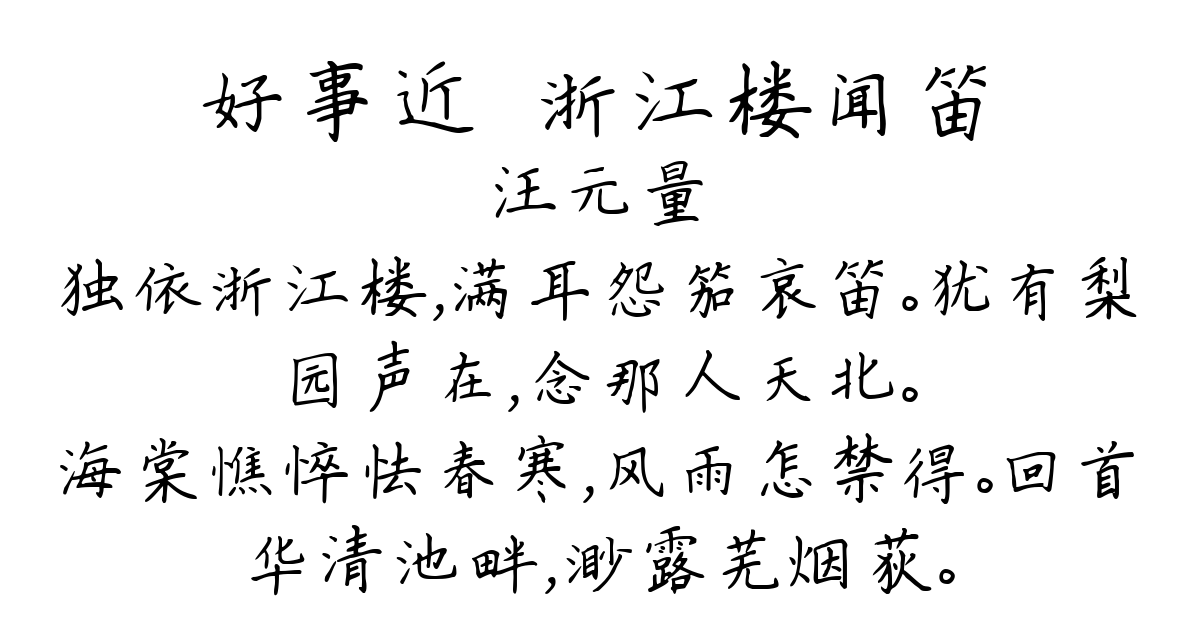 好事近 浙江楼闻笛
汪元量
独依浙江楼,满耳怨笳哀笛。犹有梨
园声在,念那人天北。
海棠憔悴怯春寒,风雨怎禁得。回首
华清池畔,渺露芜烟荻。